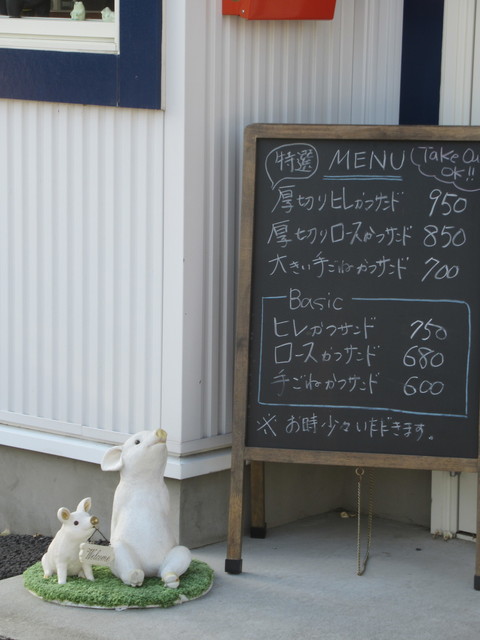 特選 MENU Take Ou OK!!
厚切りヒレかつサンド 950
厚切りロースかつサンド 850
大きい手ごねかつサンド 700
Basic
ヒレかつサンド 750
ロースかつサンド 680
手ごねかつサンド 600
※ お時少々いただきます。
Welcome